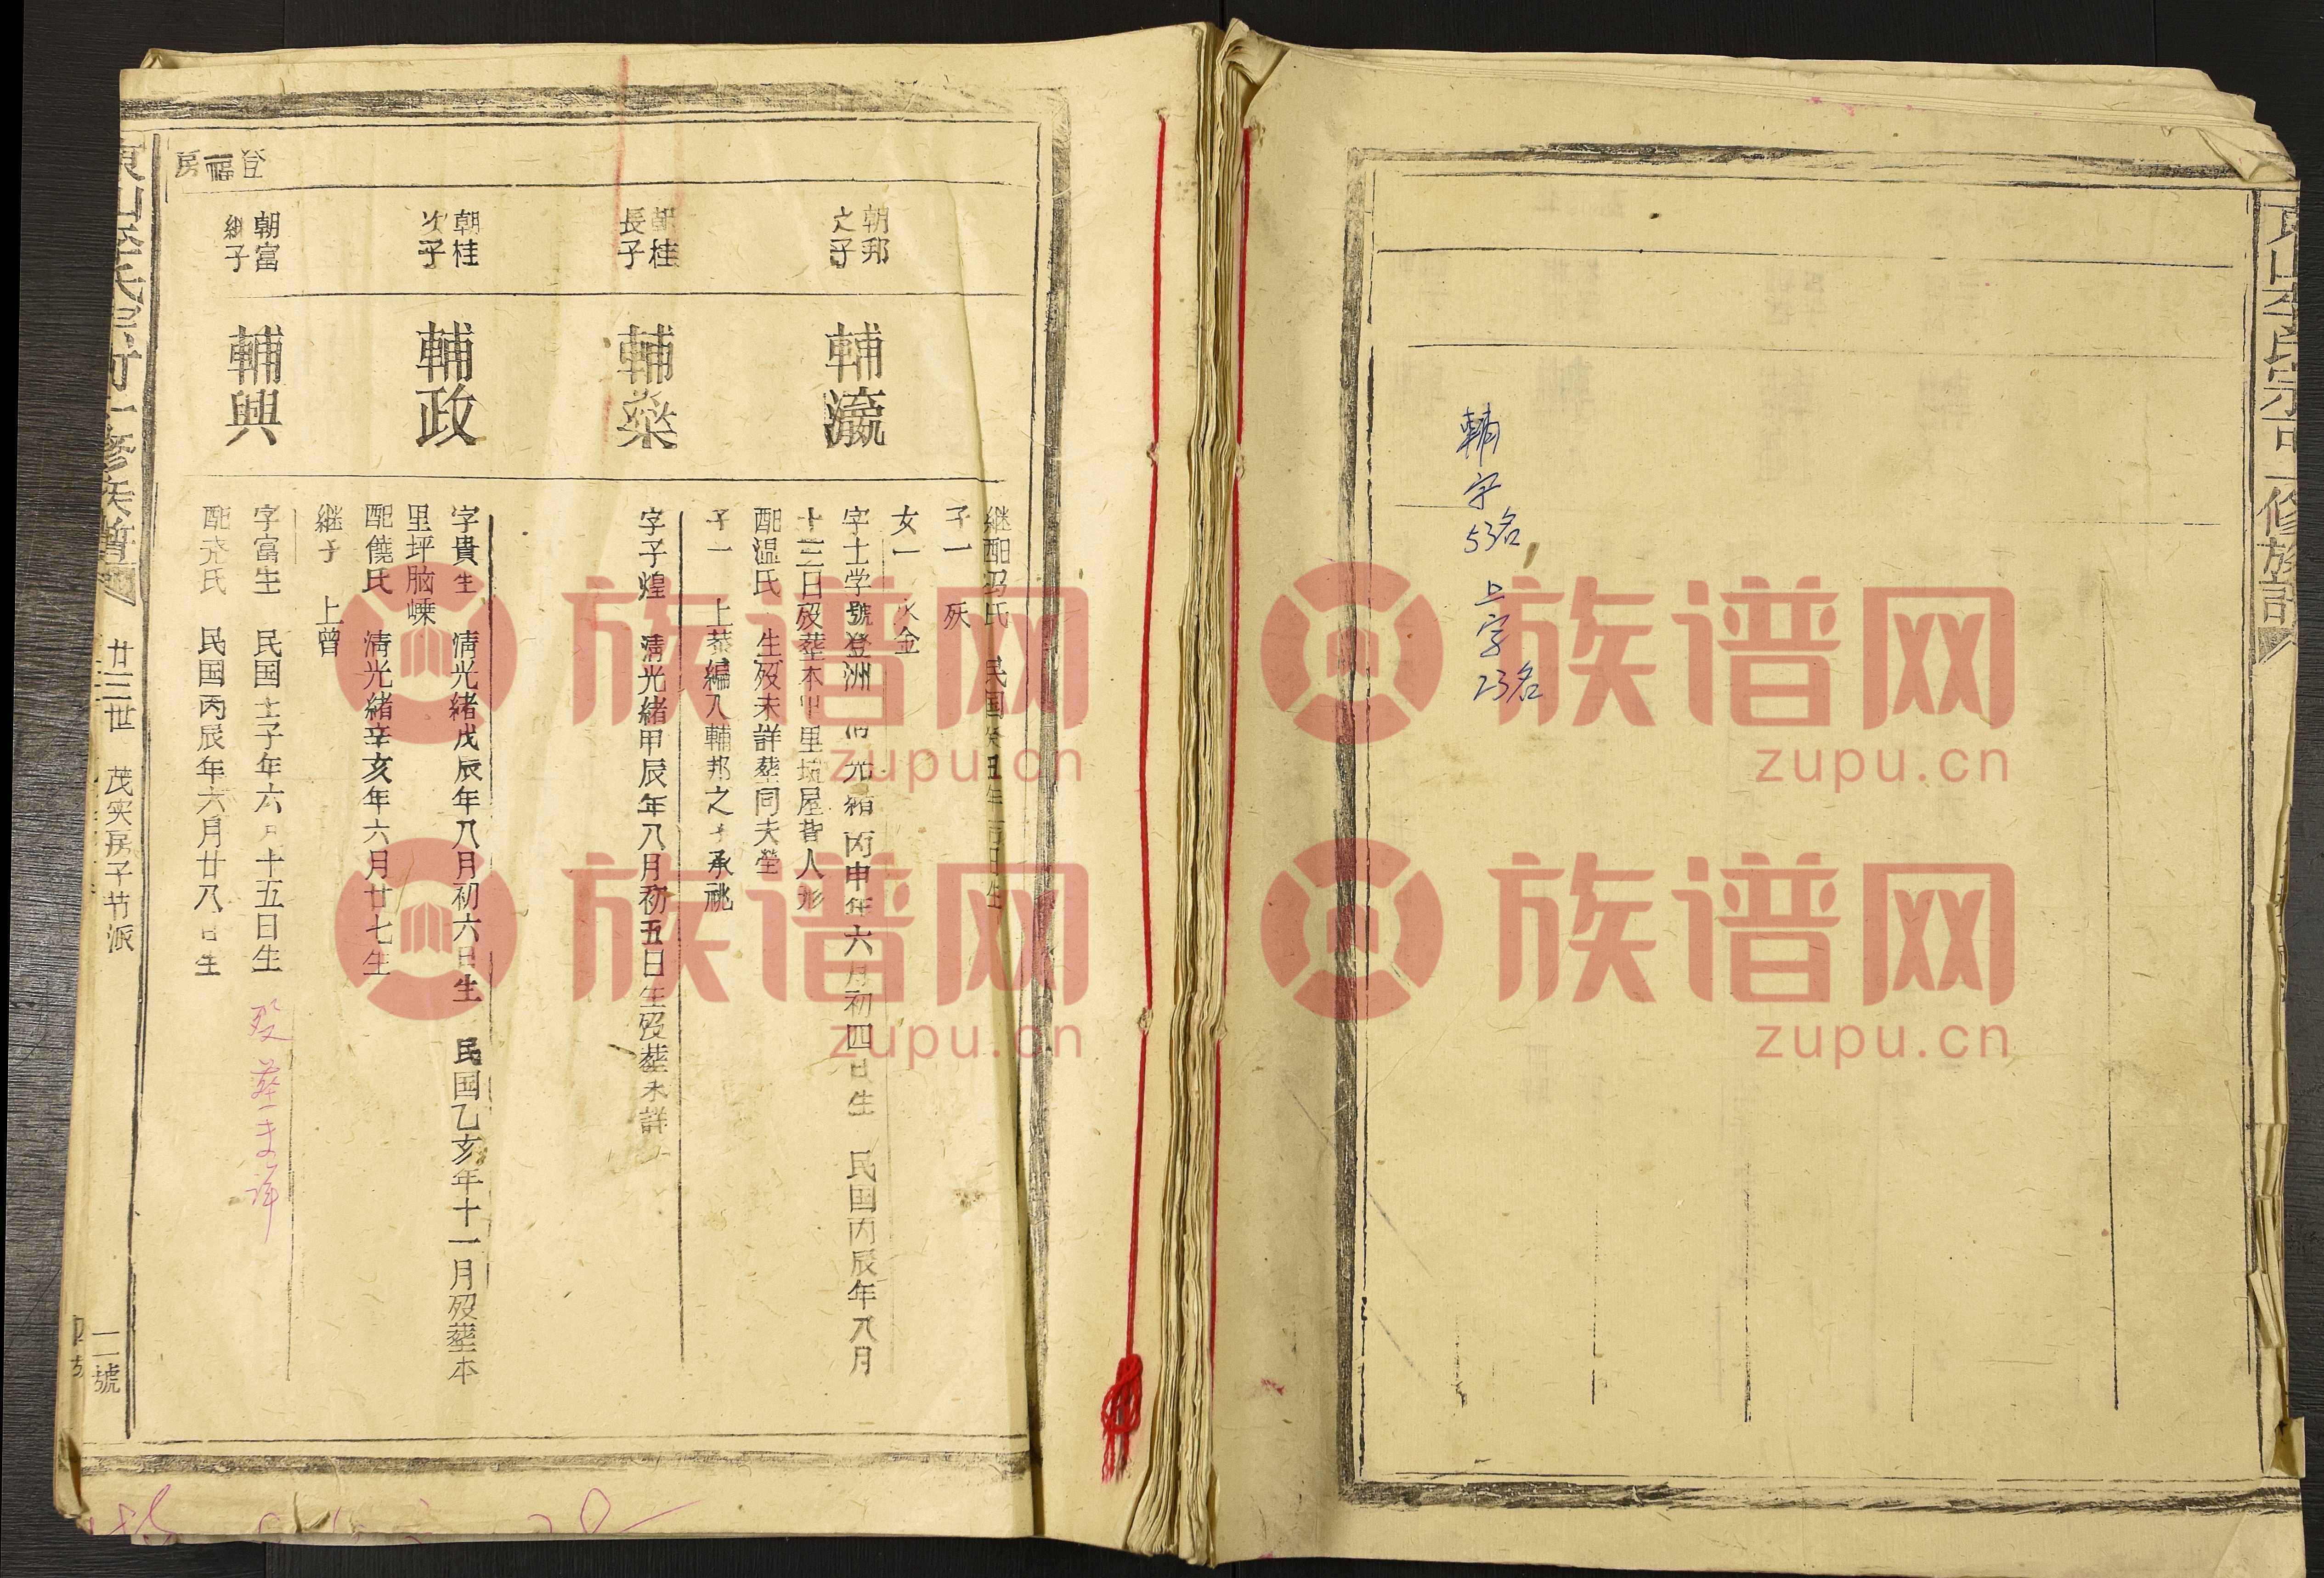 輔字
53名
上字
23名
登福房
朝邦
之子
輔瀛
继配冯氏 民国癸丑年
子一 殀
女一 火金
字士学號登洲 清光緒丙申年六月初四日生 民国丙辰年八月
十三日殁葬本甲里坑屋背人形
配温氏 生殁未詳葬同夫塋
子一 上棻編入輔邦之子承祧
朝桂
長子
輔燊
字子煌 清光緒甲辰年八月初五日生殁葬未詳
朝桂
次子
輔政
字貴生 清光緒戊辰年八月初六日生 民国乙亥年十一月殁葬本
里坪脑嵊
配饒氏 清光緒辛亥年六月廿七生
继子 上曾
朝富
继子
輔興
字富生 民国壬子年六月十五日生 殁葬未详
民国丙辰年六月廿八日生
廿三世 茂实房子节派
一號
修族譜
族谱网
zupu.cn
族谱网
zupu.cn
族谱网
zupu.cn
族谱网
zupu.cn